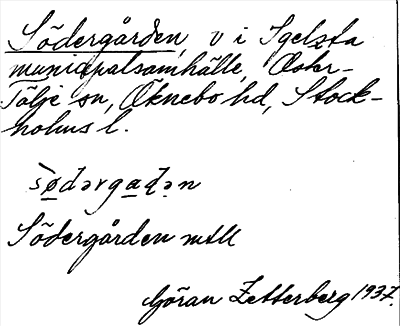 Södergården, v i Igelsta
municipalsamhälle, Öster-
Tälje sn, Öknebo hd, Stock-
holms l.
sødərgaḍən
Södergården mtll
Göran Zetterberg 1937.